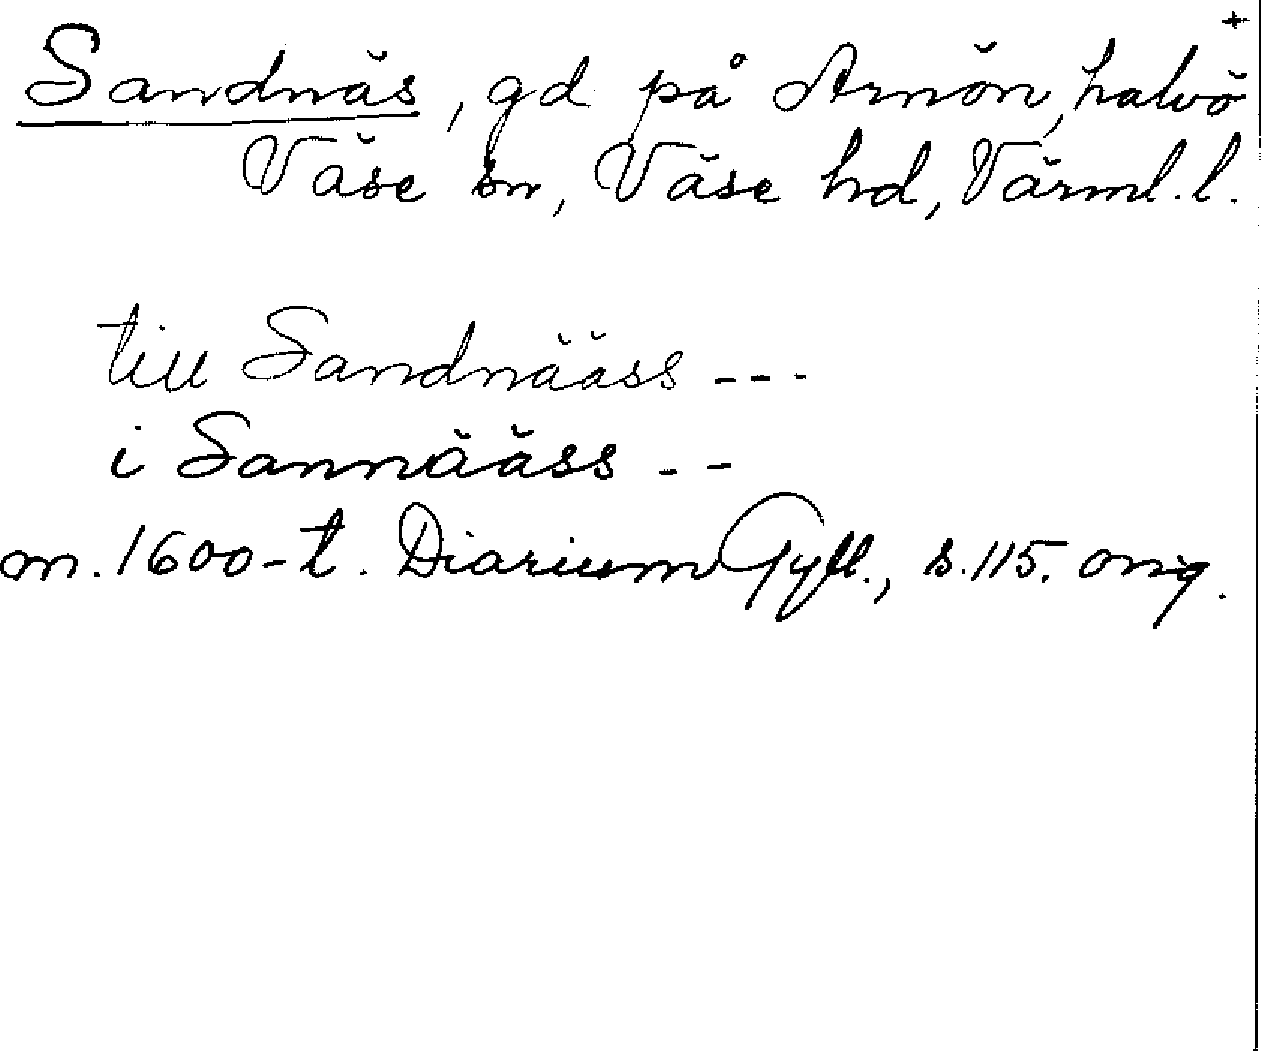 +
Sandnäs, gd på Arnön, halvö
Väse sn, Väse hd, Värml.l.
till Sandnääss ---
i Sannääss --
m. 1600-t. Diarium Gyll., s.115. orig.